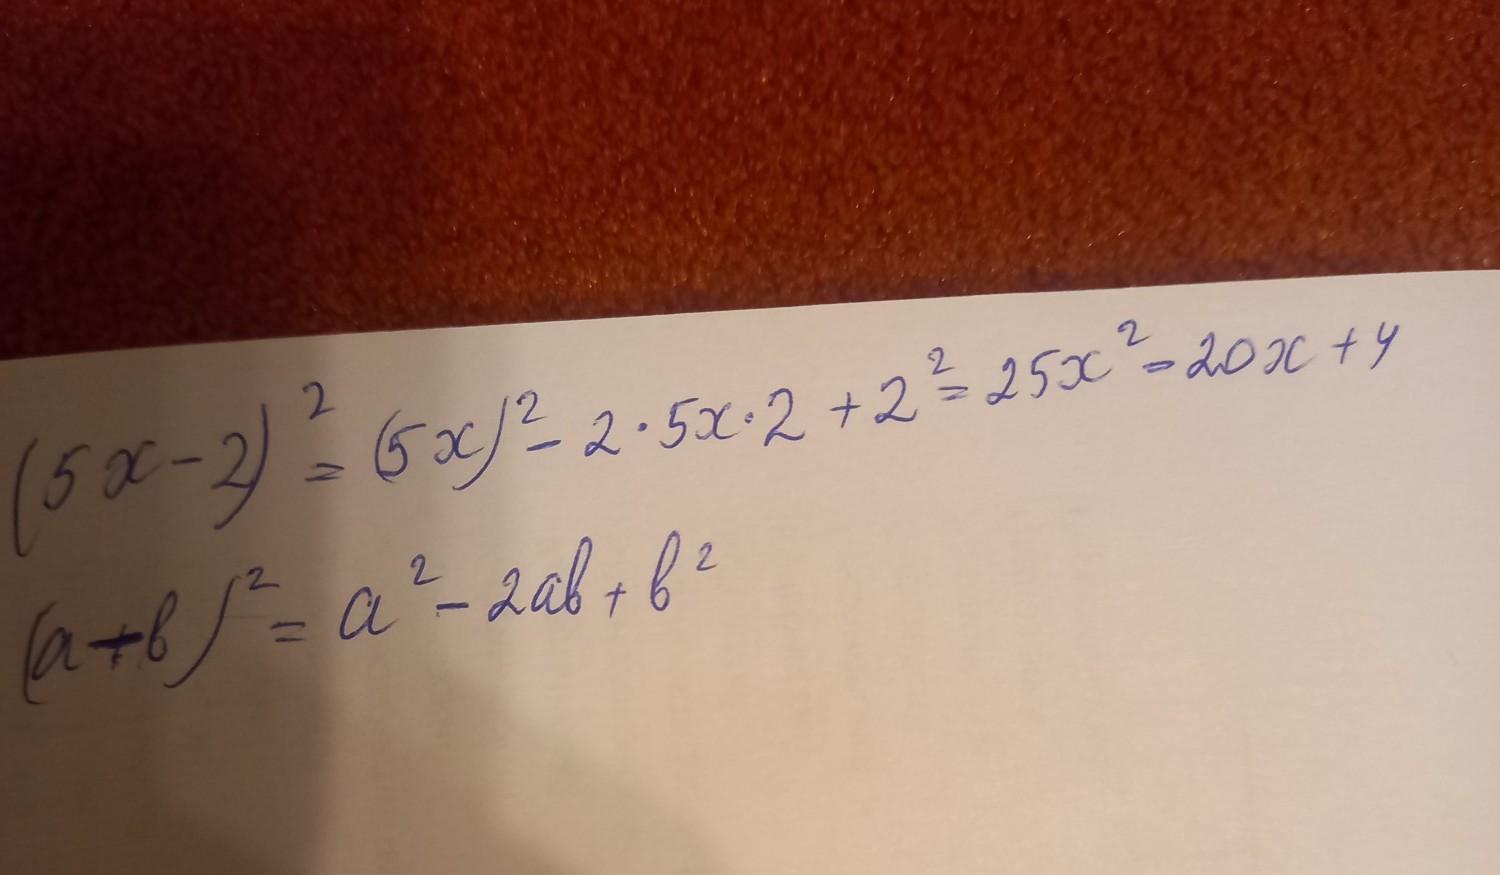 (5x-2)² = (5x)² - 2·5x·2 + 2² = 25x² - 20x + 4
(a-b)² = a² - 2ab + b²